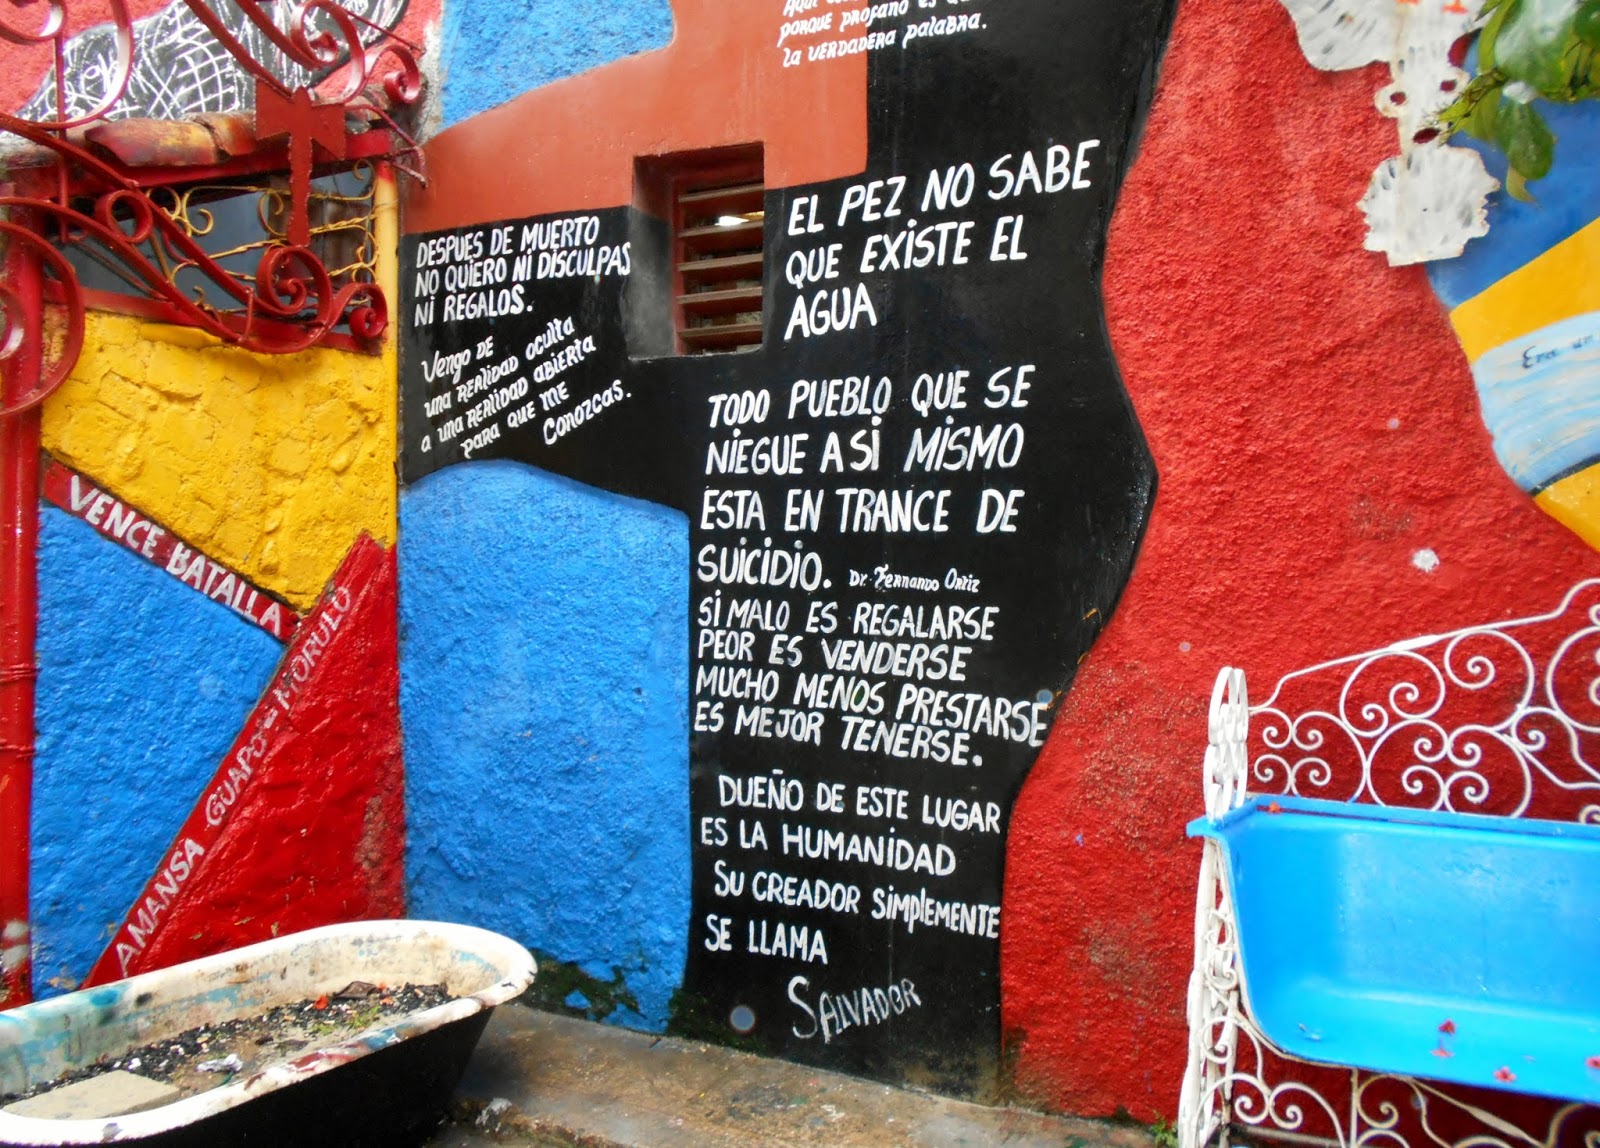 PORQUE PROFANO ES
LA VERDADERA PALABRA.
DESPUES DE MUERTO
NO QUIERO NI DISCULPAS
NI REGALOS.
Vengo DE
una REALIDAD oculta
a una REALIDAD ABIERTA
para que me
conozcas.
EL PEZ NO SABE
QUE EXISTE EL
AGUA
TODO PUEBLO QUE SE
NIEGUE A SI MISMO
ESTA EN TRANCE DE
SUICIDIO. Dr. Fernando Ortiz
SI MALO ES REGALARSE
PEOR ES VENDERSE
MUCHO MENOS PRESTARSE
ES MEJOR TENERSE.
DUEÑO DE ESTE LUGAR
ES LA HUMANIDAD
SU CREADOR SIMPLEMENTE
SE LLAMA
SALVADOR
VENCE BATALLA
AMANSA GUAPO=MORULO
Era un